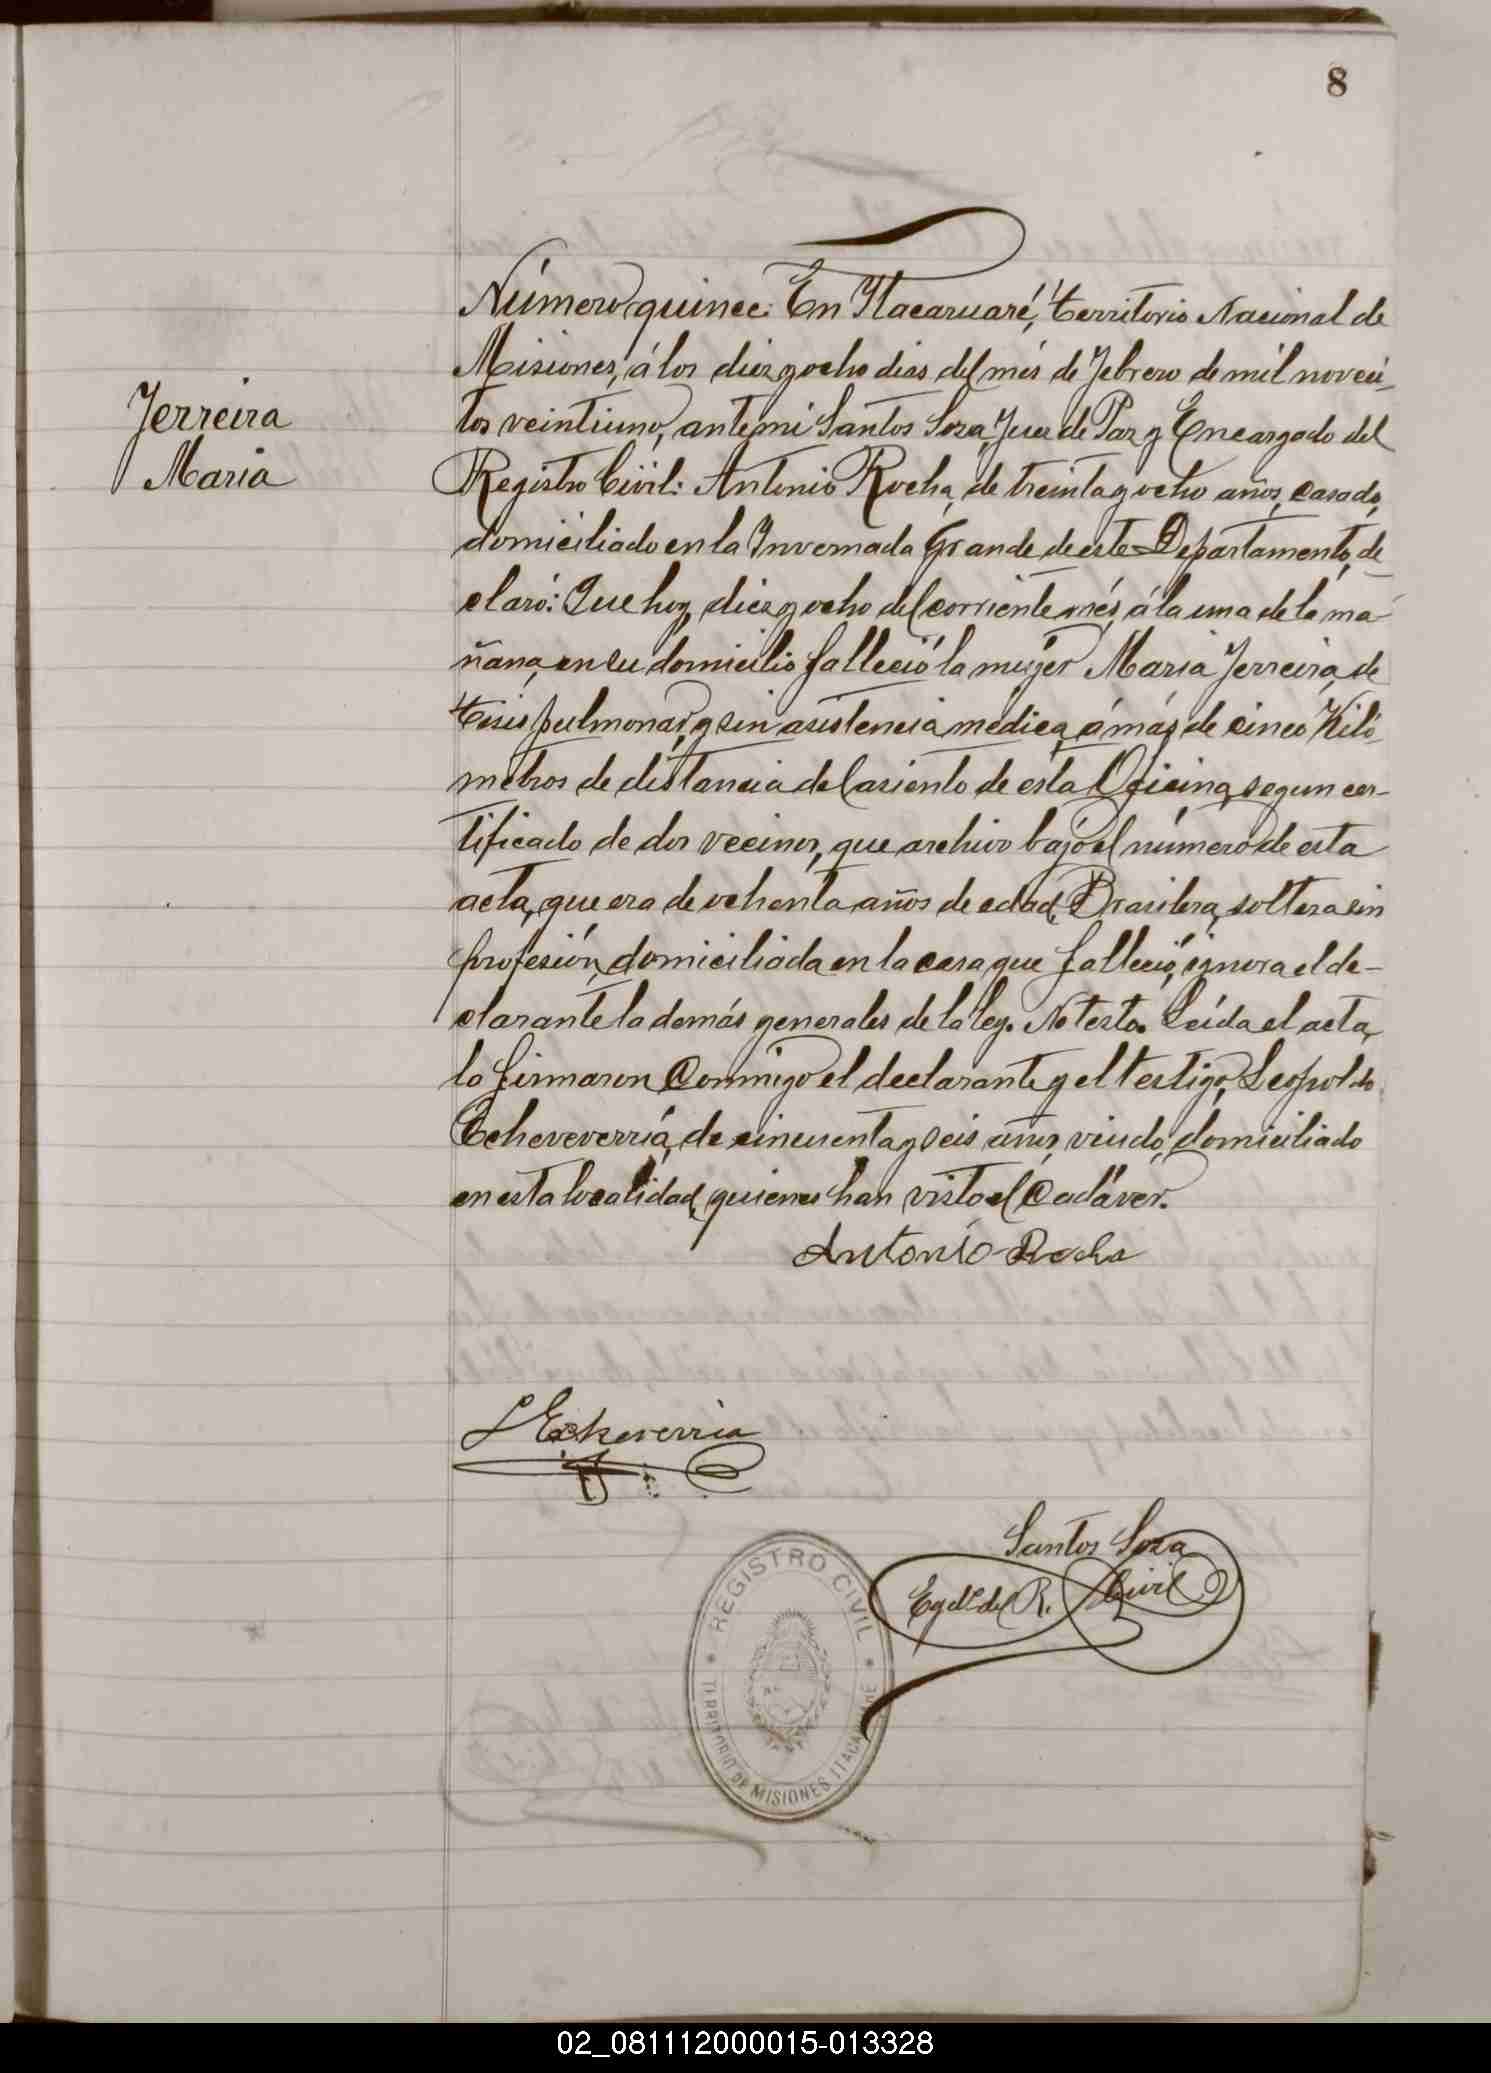 8
Ferreira
Maria
Número quince: En Itacaruaré, territorio Nacional de
Misiones, á los diez y ocho dias del més de Febrero de mil noveci-
tos veintiuno, ante mi Santos Soza, Juez de Paz y Encargado del
Registro Civil: Antonio Rocha, de treinta y ocho años, casado,
domiciliado en la Invernada Grande de este Departamento, de-
claró: Que hoy, diez y ocho del corriente més, á la una de la ma-
ñana, en su domicilio falleció la mujer Maria Ferreira, de
tisis pulmonar, y sin asistencia médica, á más de cinco Kiló-
metros de distancia del asiento de esta Oficina, segun cer-
tificado de dos vecinos, que archivo bajo el número de esta
acta, que era de ochenta años de edad, Brasilera, soltera sin
profesión, domiciliada en la casa que falleció, ignora el de-
clarante la demás generales de la ley. No testo. Leída el acta,
la firmaron conmigo el declarante y el testigo, Leopoldo
Echeveverría, de cincuenta y seis años, viudo, domiciliado
en esta localidad, quienes han visto el Cadáver.
Antonio Rocha
L Echeverria
Santos Soza
Egdo. del R. Civil
REGISTRO CIVIL
TERRITORIO DE MISIONES ITACARUARE
02_081112000015-013328